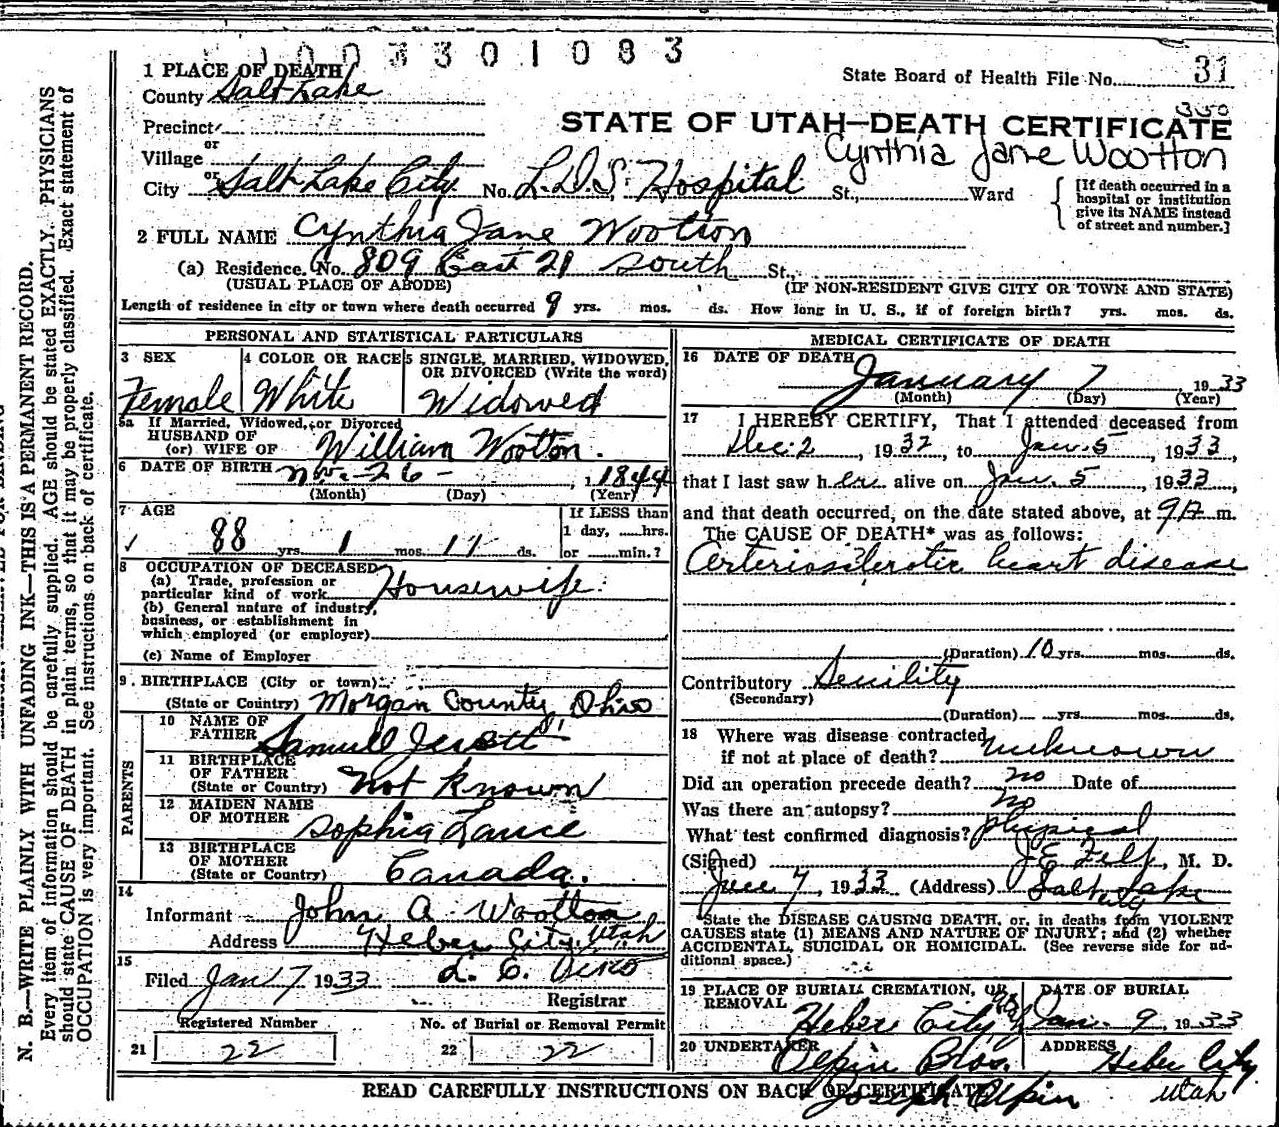 003301083
1 PLACE OF DEATH
State Board of Health File No. 31
County Salt Lake
350
Precinct
STATE OF UTAH—DEATH CERTIFICATE
or
Cynthia Jane Wootton
Village
or
City Salt Lake City. No. L.D.S. Hospital St., Ward
[If death occurred in a
hospital or institution
give its NAME instead
of street and number.]
2 FULL NAME Cynthia Jane Wootton
(a) Residence. No. 809 East 21 South St.,
(USUAL PLACE OF ABODE) (IF NON-RESIDENT GIVE CITY OR TOWN AND STATE)
Length of residence in city or town where death occurred 9 yrs. mos. ds. How long in U. S., if of foreign birth? yrs. mos. ds.
PERSONAL AND STATISTICAL PARTICULARS
3 SEX
Female
4 COLOR OR RACE
White
5 SINGLE, MARRIED, WIDOWED,
OR DIVORCED (Write the word)
Widowed
5a If Married, Widowed, or Divorced
HUSBAND OF
(or) WIFE OF William Wootton.
6 DATE OF BIRTH Nov. 26 - , 1844
(Month) (Day) (Year)
7 AGE
88 yrs. 1 mos. 11 ds.
If LESS than
1 day, ......hrs.
or ......min.?
8 OCCUPATION OF DECEASED
(a) Trade, profession or
particular kind of work Housewife
(b) General nature of industry,
business, or establishment in
which employed (or employer)
(c) Name of Employer
9 BIRTHPLACE (City or town)
(State or Country) Morgan County, Ohio
PARENTS
10 NAME OF
FATHER Samuel Jewett
11 BIRTHPLACE
OF FATHER
(State or Country) Not Known
12 MAIDEN NAME
OF MOTHER Sophia Lance
13 BIRTHPLACE
OF MOTHER
(State or Country) Canada.
14
Informant John A Wootton
Address Heber City, Utah
15
Filed Jan 7 1933
Registrar
Registered Number
21 22
No. of Burial or Removal Permit
22 22
MEDICAL CERTIFICATE OF DEATH
16 DATE OF DEATH
January 7, 1933
(Month) (Day) (Year)
17 I HEREBY CERTIFY, That I attended deceased from
Dec. 2, 1932, to Jan. 5, 1933,
that I last saw her alive on Jan. 5, 1933,
and that death occurred, on the date stated above, at 9 A m.
The CAUSE OF DEATH* was as follows:
Arteriosclerotic heart disease
(Duration) 10 yrs. mos. ds.
Contributory Senility
(Secondary)
(Duration) yrs. mos. ds.
18 Where was disease contracted
if not at place of death? unknown
Did an operation precede death? no Date of
Was there an autopsy? no
What test confirmed diagnosis? physical
(Signed) M. D.
7, 1933 (Address) Salt Lake City
*State the DISEASE CAUSING DEATH, or, in deaths from VIOLENT
CAUSES state (1) MEANS AND NATURE OF INJURY; and (2) whether
ACCIDENTAL, SUICIDAL OR HOMICIDAL. (See reverse side for ad-
ditional space.)
19 PLACE OF BURIAL, CREMATION, OR
REMOVAL
Heber City Utah
DATE OF BURIAL
Jan. 9, 1933
20 UNDERTAKER
Olpin Bros.
Joseph Olpin
ADDRESS
Heber City
Utah
READ CAREFULLY INSTRUCTIONS ON BACK OF CERTIFICATE
N. B.—WRITE PLAINLY WITH UNFADING INK—THIS IS A PERMANENT RECORD.
Every item of information should be carefully supplied. AGE should be stated EXACTLY. PHYSICIANS
should state CAUSE OF DEATH in plain terms, so that it may be properly classified. Exact statement of
OCCUPATION is very important. See instructions on back of certificate.